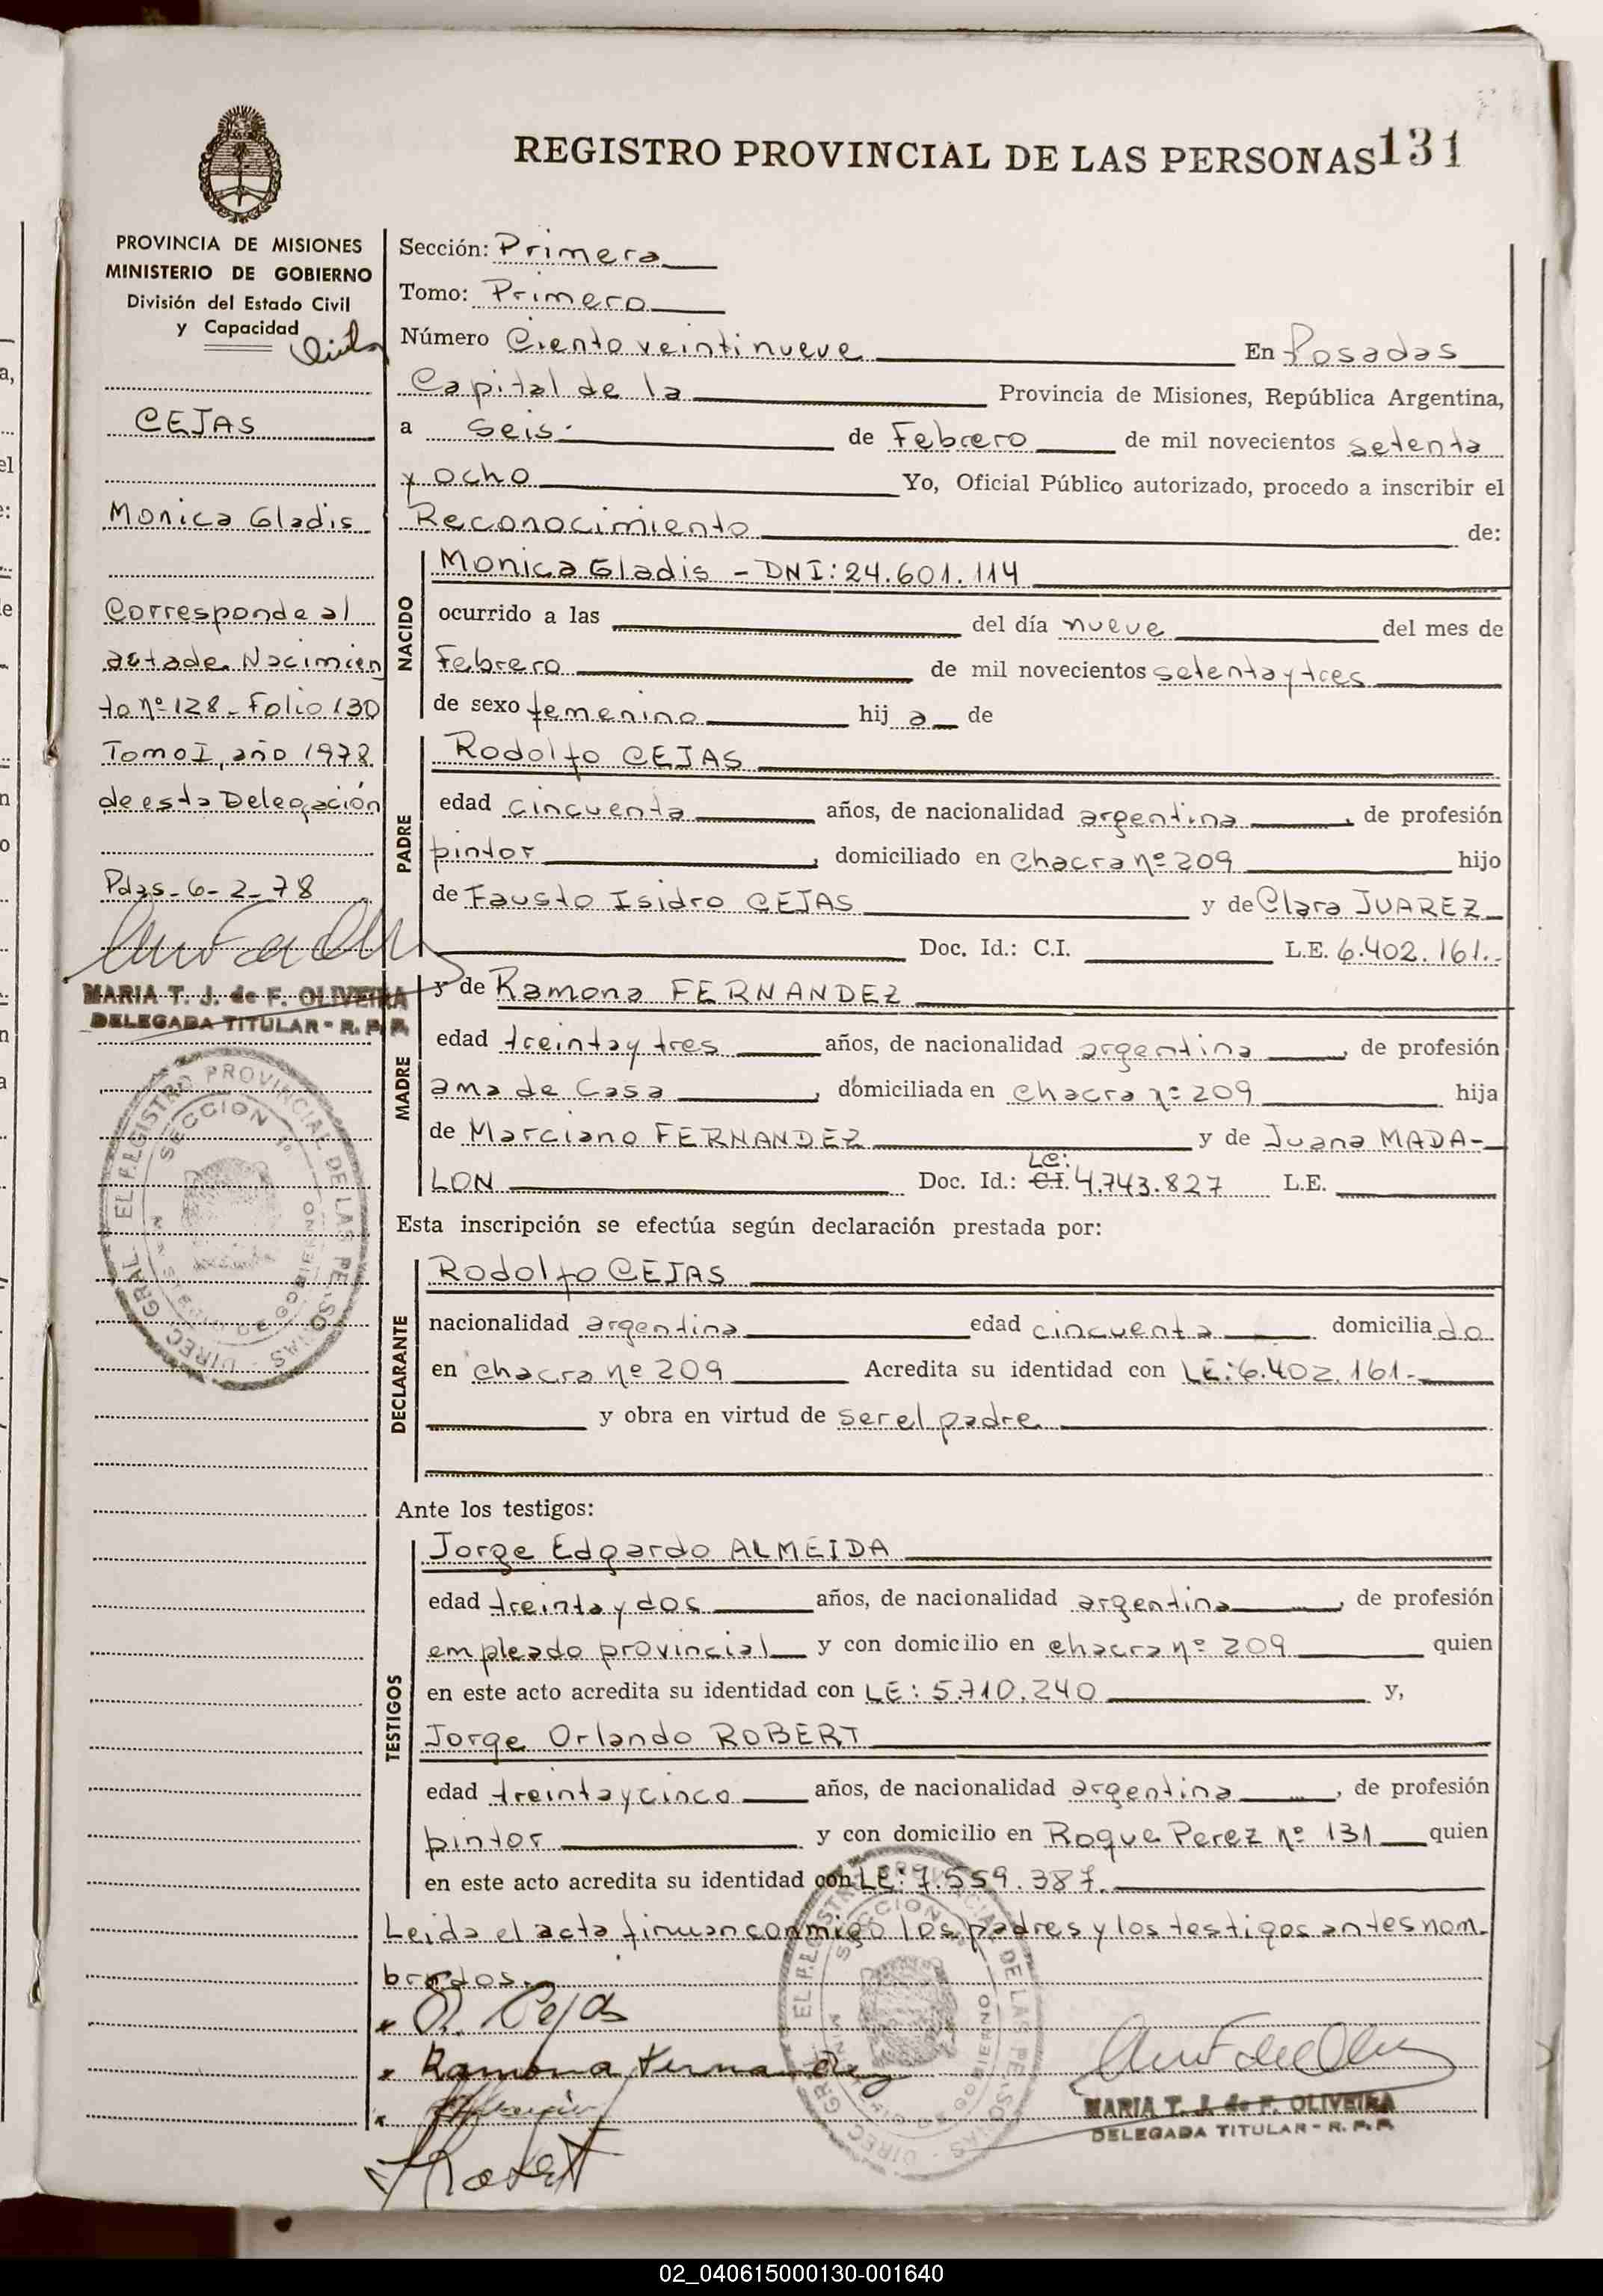 REGISTRO PROVINCIAL DE LAS PERSONAS 131
PROVINCIA DE MISIONES
MINISTERIO DE GOBIERNO
División del Estado Civil
y Capacidad
CEJAS
Monica Gladis
Corresponde al
acta de Nacimien
to nº 128 - Folio 130
Tomo I, año 1978
de esta Delegación
Pdas - 6 - 2 - 78
MARIA T. J. de F. OLIVEIRA
DELEGADA TITULAR - R. P. P.
Sección: Primera
Tomo: Primero
Número Ciento veintinueve En Posadas
Capital de la Provincia de Misiones, República Argentina,
a Seis.- de Febrero de mil novecientos setenta
y ocho Yo, Oficial Público autorizado, procedo a inscribir el
Reconocimiento de:
NACIDO
Monica Gladis - DNI: 24.601.114
ocurrido a las del día nueve del mes de
Febrero de mil novecientos setenta y tres
de sexo femenino hij a de
PADRE
Rodolfo CEJAS
edad cincuenta años, de nacionalidad argentina, de profesión
pintor, domiciliado en chacra nº 209 hijo
de Fausto Isidro CEJAS y de Clara JUAREZ
Doc. Id.: C.I. L.E. 6.402.161.-
MADRE
y de Ramona FERNANDEZ
edad treinta y tres años, de nacionalidad argentina, de profesión
ama de casa, domiciliada en chacra nº 209 hija
de Marciano FERNANDEZ y de Juana MADA-
LON Doc. Id.: C.I. LC: 4.743.827 L.E.
Esta inscripción se efectúa según declaración prestada por:
DECLARANTE
Rodolfo CEJAS
nacionalidad argentina edad cincuenta domicilia do
en chacra nº 209 Acredita su identidad con LE: 6.402.161.-
y obra en virtud de ser el padre
Ante los testigos:
TESTIGOS
Jorge Edgardo ALMEIDA
edad treinta y dos años, de nacionalidad argentina, de profesión
empleado provincial y con domicilio en chacra nº 209 quien
en este acto acredita su identidad con LE: 5.710.240 y,
Jorge Orlando ROBERT
edad treinta y cinco años, de nacionalidad argentina, de profesión
pintor y con domicilio en Roque Perez nº 131 quien
en este acto acredita su identidad con LE: 7.559.387.
Leida el acta firman conmigo los padres y los testigos antes nom-
brados.
R. Cejas
Ramona Fernandez
Robert
MARIA T. J. de F. OLIVEIRA
DELEGADA TITULAR - R. P. P.
02_040615000130-001640